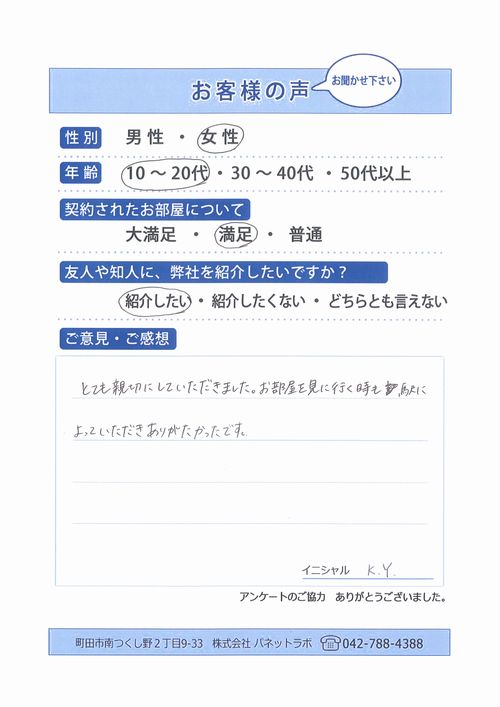 お客様の声
お聞かせ下さい
性別 男性 ・ 女性
年齢 10～20代・30～40代・50代以上
契約されたお部屋について
大満足 ・ 満足 ・ 普通
友人や知人に、弊社を紹介したいですか？
紹介したい・紹介したくない・どちらとも言えない
ご意見・ご感想
とても親切にしていただきました。お部屋を見に行く時も 駅に
よっていただきありがたかったです。
イニシャル K.Y.
アンケートのご協力 ありがとうございました。
町田市南つくし野２丁目9-33 株式会社 パネットラボ ☎042-788-4388